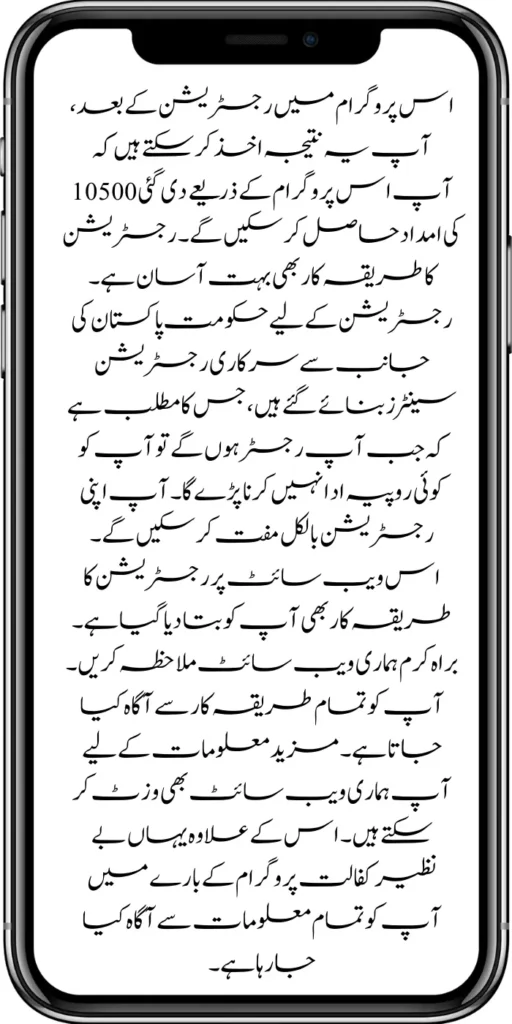 اس پروگرام میں رجسٹریشن کے بعد،
آپ یہ نتیجہ اخذ کر سکتے ہیں کہ
آپ اس پروگرام کے ذریعے دی گئی 10500
کی امداد حاصل کر سکیں گے۔ رجسٹریشن
کا طریقہ کار بھی بہت آسان ہے۔
رجسٹریشن کے لیے حکومت پاکستان کی
جانب سے سرکاری رجسٹریشن
سینٹرز بنائے گئے ہیں، جس کا مطلب ہے
کہ جب آپ رجسٹر ہوں گے تو آپ کو
کوئی روپیہ ادا نہیں کرنا پڑے گا۔ آپ اپنی
رجسٹریشن بالکل مفت کر سکیں گے۔
اس ویب سائٹ پر رجسٹریشن کا
طریقہ کار بھی آپ کو بتا دیا گیا ہے۔
براہ کرم ہماری ویب سائٹ ملاحظہ کریں۔
آپ کو تمام طریقہ کار سے آگاہ کیا
جاتا ہے۔ مزید معلومات کے لیے
آپ ہماری ویب سائٹ بھی وزٹ کر
سکتے ہیں۔ اس کے علاوہ یہاں بے
نظیر کفالت پروگرام کے بارے میں
آپ کو تمام معلومات سے آگاہ کیا
جا رہا ہے۔